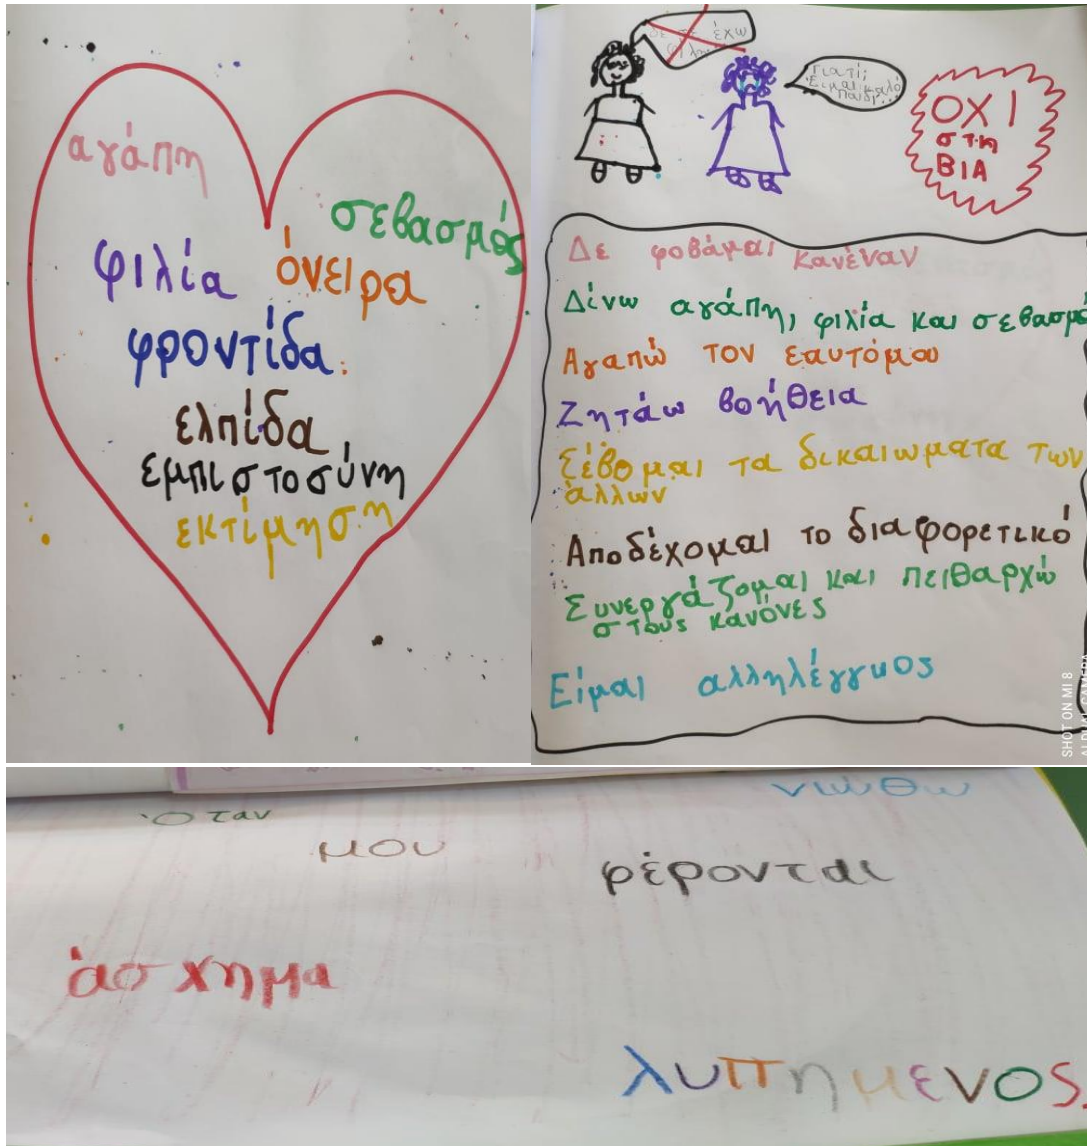 αγάπη
σεβασμός
φιλία όνειρα
φροντίδα.
ελπίδα
εμπιστοσύνη
εκτίμηση
δε σε έχω
φίλη
Γιατί;
Είμαι καλό
παιδί...
ΟΧΙ
στη
ΒΙΑ
Δε φοβάμαι κανέναν
Δίνω αγάπη, φιλία και σεβασμό
Αγαπώ τον εαυτόμου
Ζητάω βοήθεια
Σέβομαι τα δικαιωματα των
άλλων
Αποδέχομαι το διαφορετικό
Συνεργάζομαι και πειθαρχώ
στους κανόνες
Είμαι αλληλέγγυος
SHOT ON MI 8
AI DUAL CAMERA
Όταν
μου
φέρονται
άσχημα
νιώθω
λυπημενος.